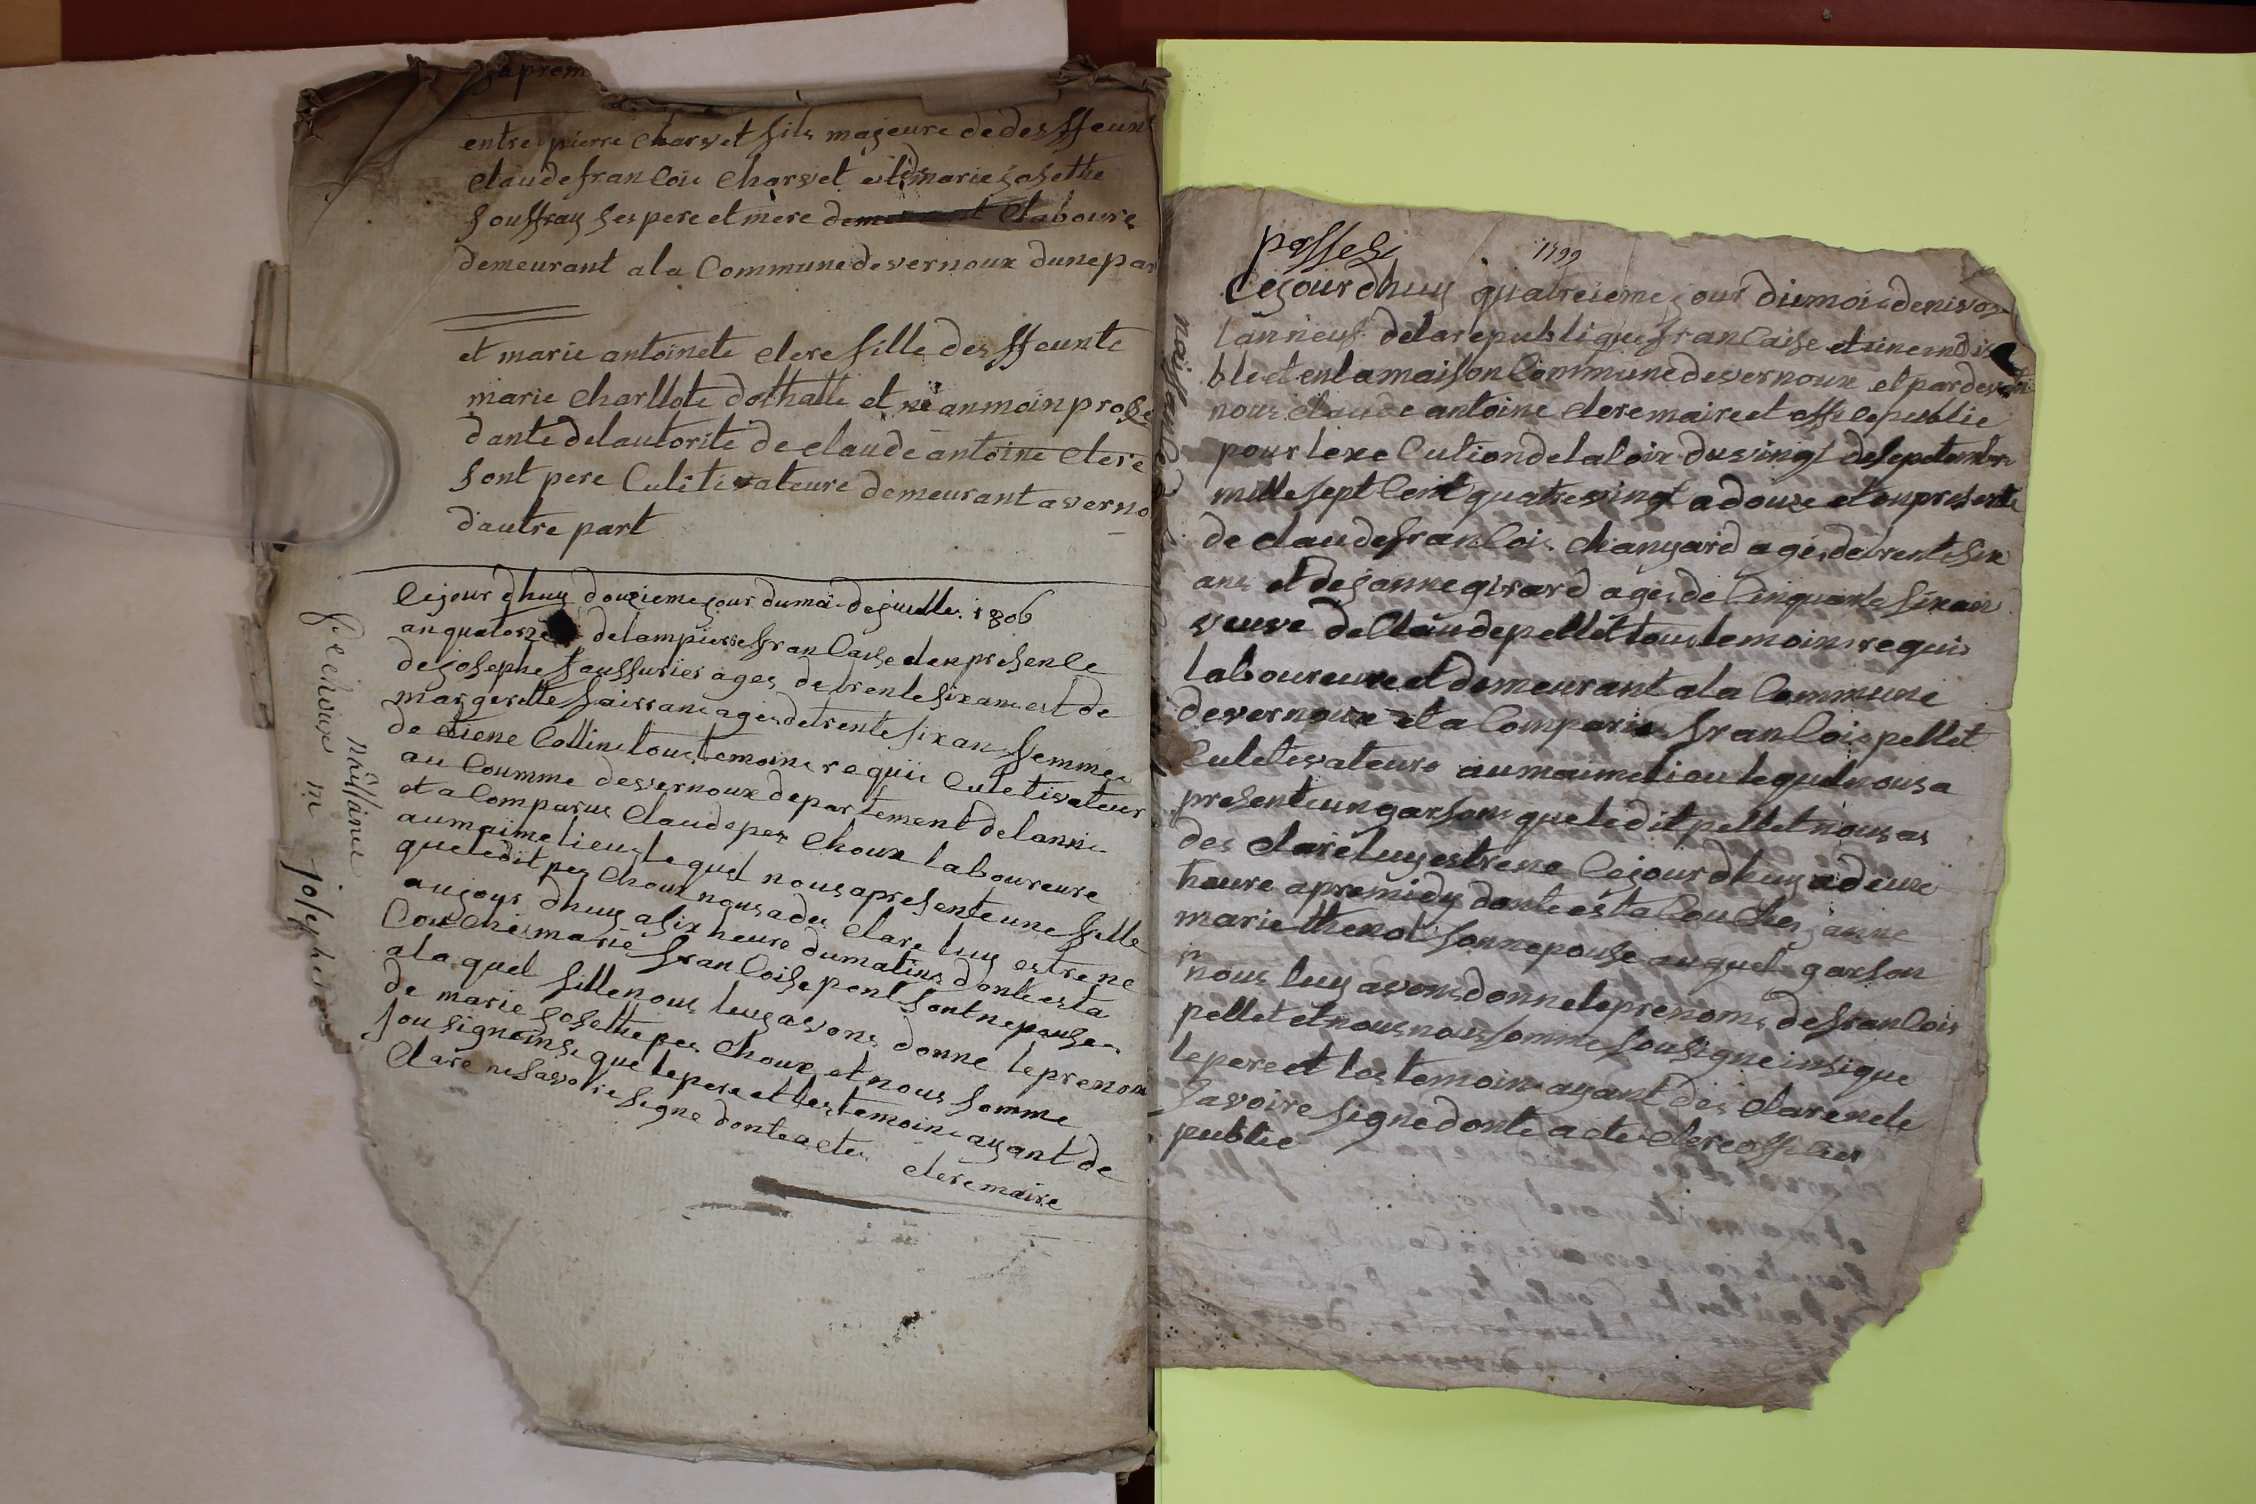 sa prem
entre pierre Charvet fils majeure de desffeunt
Claude francois Charvet et de marie josethe
souffray ses pere et mere Claboure
demeurant a la Commune de vernoux dune par
et marie antoinete Clere fille desffeunte
marie Charllote dothatte et néanmoin proßé
dante delautorité de Claude antoine Clere
sont pere Cultitivateure demeurant a verno
dautre part
Cejour dhuy douzieme jour du moi de juelle 1806
an quatorze delampiere francaise et en presence
de josephe faussurier ages de trente six ans et de
margerette sairrans ages de trente six ans femmee
de etiene Collin tous temoins requis Culetivateur
au Coumme de vernoux departement de lanni
et a Comparus Claude pey Choux laboureure
au maime lieus le quel nous a presente une fille
que ledit pey Choux nous a des Clare luy estre ne
aujour dhuy a six heure du matins donte esta
Couchée marie francoise pont sont nepouse
a la quel fille nous luy avons donne le prenom
de marie josethe pey Choux et nous somme
sousigneinsi que le pere et les temoin ayant de
Clare ne savoire signe donte acte
Clere maire
naissance
josephine
passe Si
1799
Cejour dhuy quatreieme jour du moi de nivo
lan neuf de la republique francaise et
ble et en la maison Commune de vernoux et par devant
nous Claude antoine Clere maire et offi Ce publie
pour lexe Cution de la loix du vingt de Sepetembre
mille sept Cent quatre vingt a douze et en presente
de Claude francois Chanyard ages de trente six
ans et de janne girard ages de Cinquante six an
veuve de Claude pellet tous temoins requis
laboureure et demeurant a la Commune
de vernoux et a Comparu francois pellet
Culetivateure au maime lieu lequel nous a
presente un garson que ledit pellet nous as
des Clare luy estre ne Cejour dhuy a deux
heure apremidy donte esta Couches janne
marie thenot sonnepouse auquel garson
nous luy avons donne le prenom de francois
pellet et nous nous somme sousigne insique
le pere et les temoin ayant des Clare ne le
savoire signe donte acte Clere offi Cier
public